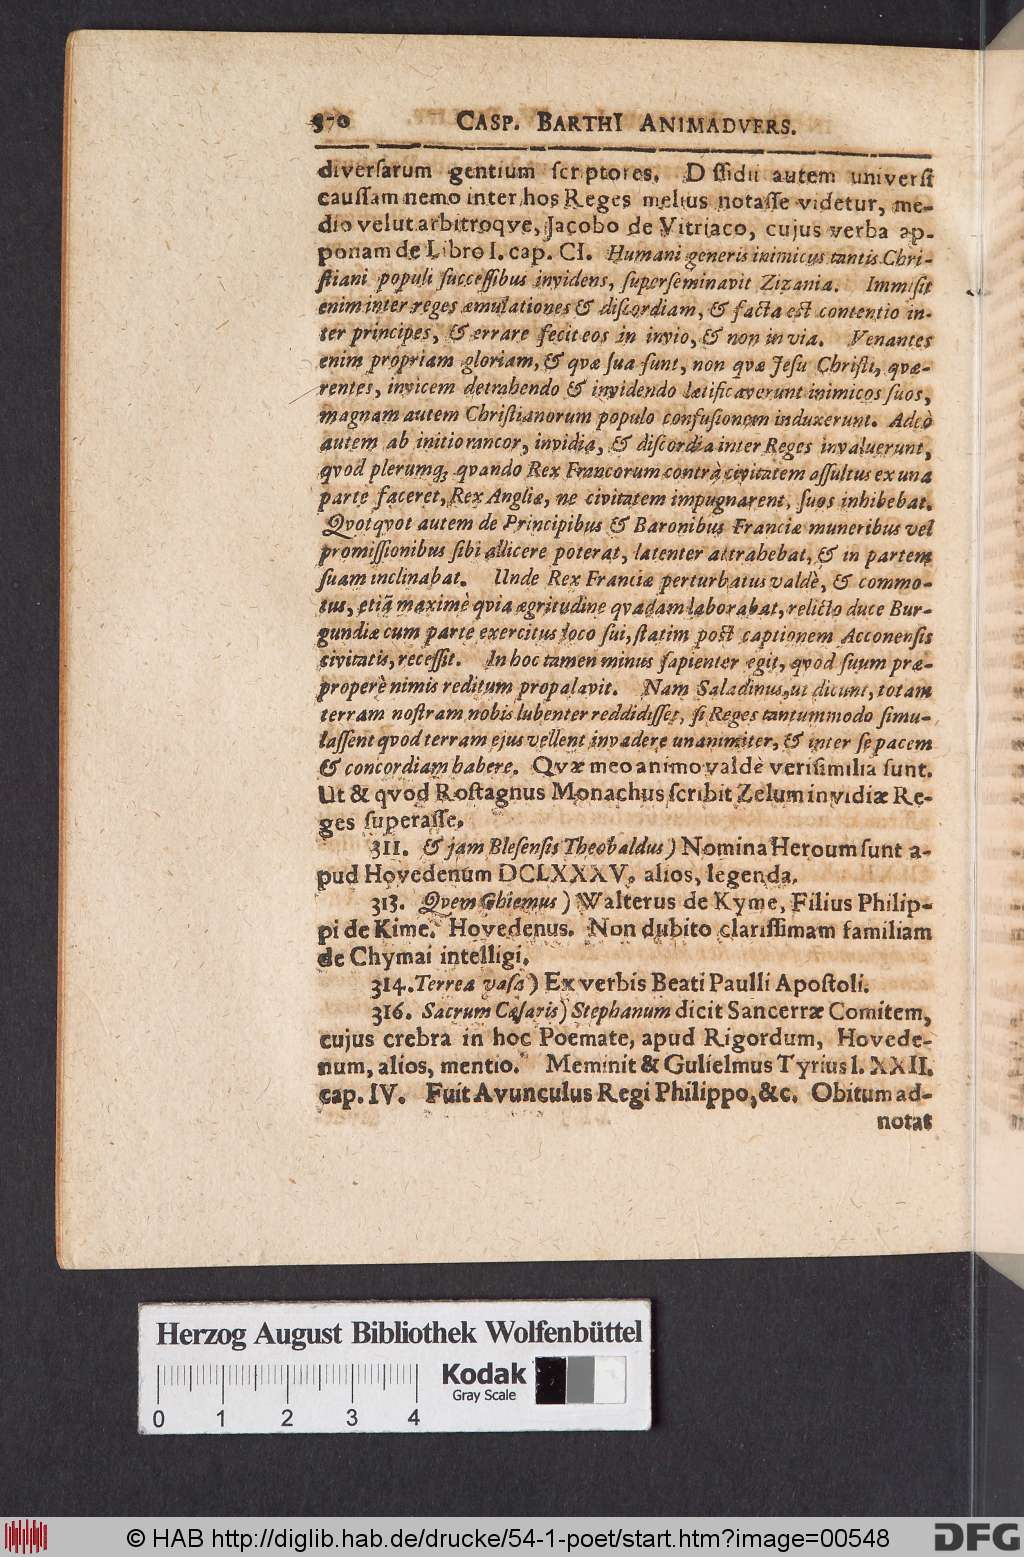 370 CASP. BARTHI ANIMADVERS.
diversarum gentium scriptores. D ssidii autem universi
caussam nemo inter hos Reges melius notasse videtur, me-
dio velut arbitroqve, Jacobo de Vitriaco, cujus verba ap-
ponam de Libro I. cap. CI. Humani generis inimicus tantis Chri-
stiani populi successibus invidens, superseminavit Zizania. Immisit
enim inter reges æmulationes & discordiam, & facta est contentio in-
ter principes, & errare fecit eos in invio, & non in via. Venantes
enim propriam gloriam, & qvæ sua sunt, non qvæ Jesu Christi, qvæ-
rentes, invicem detrahendo & invidendo lætificaverunt inimicos suos,
magnam autem Christianorum populo confusionem induxerunt. Adeò
autem ab initio rancor, invidia, & discordia inter Reges invaluerunt,
qvod plerumq; qvando Rex Francorum contrà civitatem assultus ex una
parte faceret, Rex Angliæ, ne civitatem impugnarent, suos inhibebat.
Qvotqvot autem de Principibus & Baronibus Franciæ muneribus vel
promissionibus sibi allicere poterat, latenter attrahebat, & in partem
suam inclinabat. Unde Rex Franciæ perturbatus valdè, & commo-
tus, etiã maximè qvia ægritudine qvadam laborabat, relicto duce Bur-
gundiæ cum parte exercitus loco sui, statim post captionem Acconensis
civitatis, recessit. In hoc tamen minus sapienter egit, qvod suum præ-
properè nimis reditum propalavit. Nam Saladinus, ut dicunt, totam
terram nostram nobis lubenter reddidisset, si Reges tantummodo simu-
lassent qvod terram ejus vellent invadere unanimiter, & inter se pacem
& concordiam habere. Qvæ meo animo valdè verisimilia sunt.
Ut & qvod Rostagnus Monachus scribit Zelum invidiæ Re-
ges superasse.
311. & jam Blesensis Theobaldus) Nomina Heroum sunt a-
pud Hovedenum DCLXXXV. alios, legenda.
313. Qvem Ghiemus) Walterus de Kyme, Filius Philip-
pi de Kime. Hovedenus. Non dubito clarissimam familiam
de Chymai intelligi.
314. Terrea vasa) Ex verbis Beati Paulli Apostoli.
316. Sacrum Cæsaris) Stephanum dicit Sancerræ Comitem,
cujus crebra in hoc Poemate, apud Rigordum, Hovede-
num, alios, mentio. Meminit & Gulielmus Tyrius l. XXII.
cap. IV. Fuit Avunculus Regi Philippo, &c. Obitum ad-
notat
Herzog August Bibliothek Wolfenbüttel
Kodak
Gray Scale
0 1 2 3 4
© HAB http://diglib.hab.de/drucke/54-1-poet/start.htm?image=00548
DFG